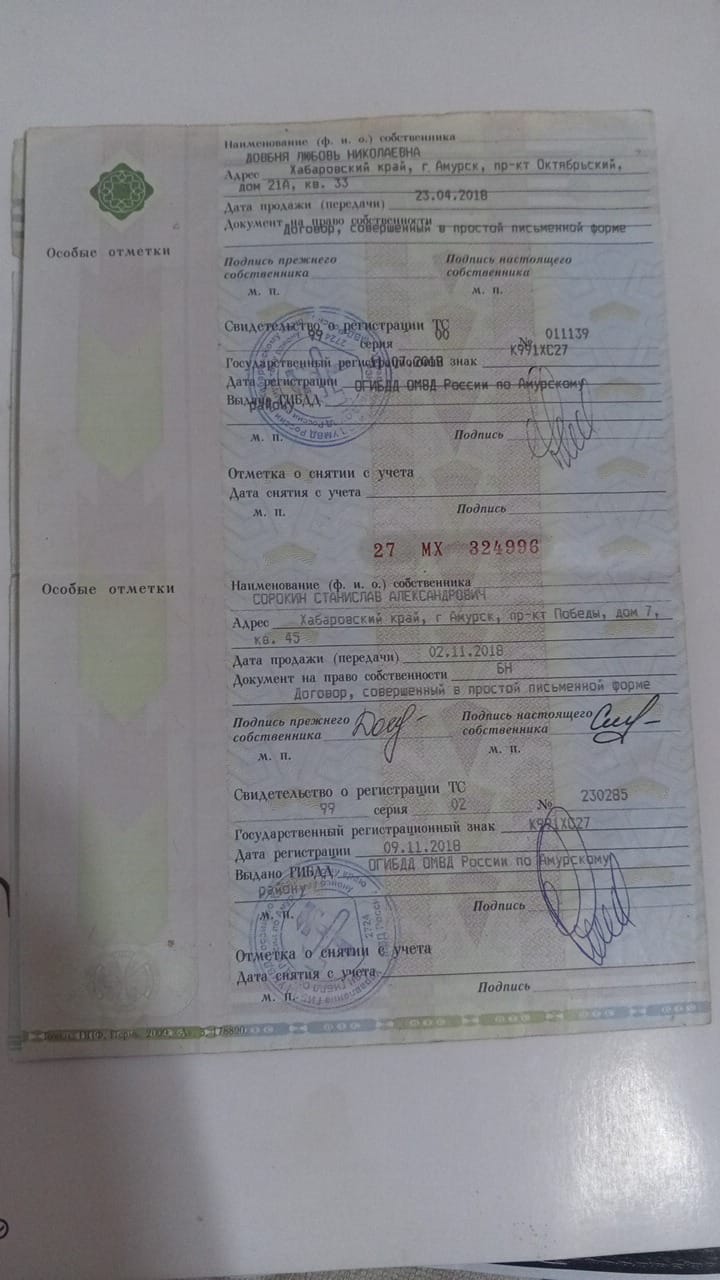 Наименование (ф. и. о.) собственника
ДОВБНЯ ЛЮБОВЬ НИКОЛАЕВНА
Адрес Хабаровский край, г. Амурск, пр-кт Октябрьский,
дом 21А, кв. 33
Дата продажи (передачи) 23.04.2018
Документ на право собственности
Договор, совершенный в простой письменной форме
Особые отметки
Подпись прежнего собственника
Подпись настоящего собственника
м. п.
м. п.
Свидетельство о регистрации ТС
99 серия 00 № 011139
Государственный регистрационный знак К991ХС27
Дата регистрации 07.2018
Выдано ГИБДД ОГИБДД ОМВД России по Амурскому
району
м. п. Подпись
Отметка о снятии с учета
Дата снятия с учета
м. п. Подпись
27 МХ 324996
Особые отметки
Наименование (ф. и. о.) собственника
СОРОКИН СТАНИСЛАВ АЛЕКСАНДРОВИЧ
Адрес Хабаровский край, г Амурск, пр-кт Победы, дом 7,
кв. 45
Дата продажи (передачи) 02.11.2018
Документ на право собственности БН
Договор, совершенный в простой письменной форме
Подпись прежнего собственника
Подпись настоящего собственника
м. п.
м. п.
Свидетельство о регистрации ТС
99 серия 02 № 230285
Государственный регистрационный знак К991ХС27
Дата регистрации 09.11.2018
Выдано ГИБДД ОГИБДД ОМВД России по Амурскому
району
м. п. Подпись
Отметка о снятии с учета
Дата снятия с учета
м. п. Подпись